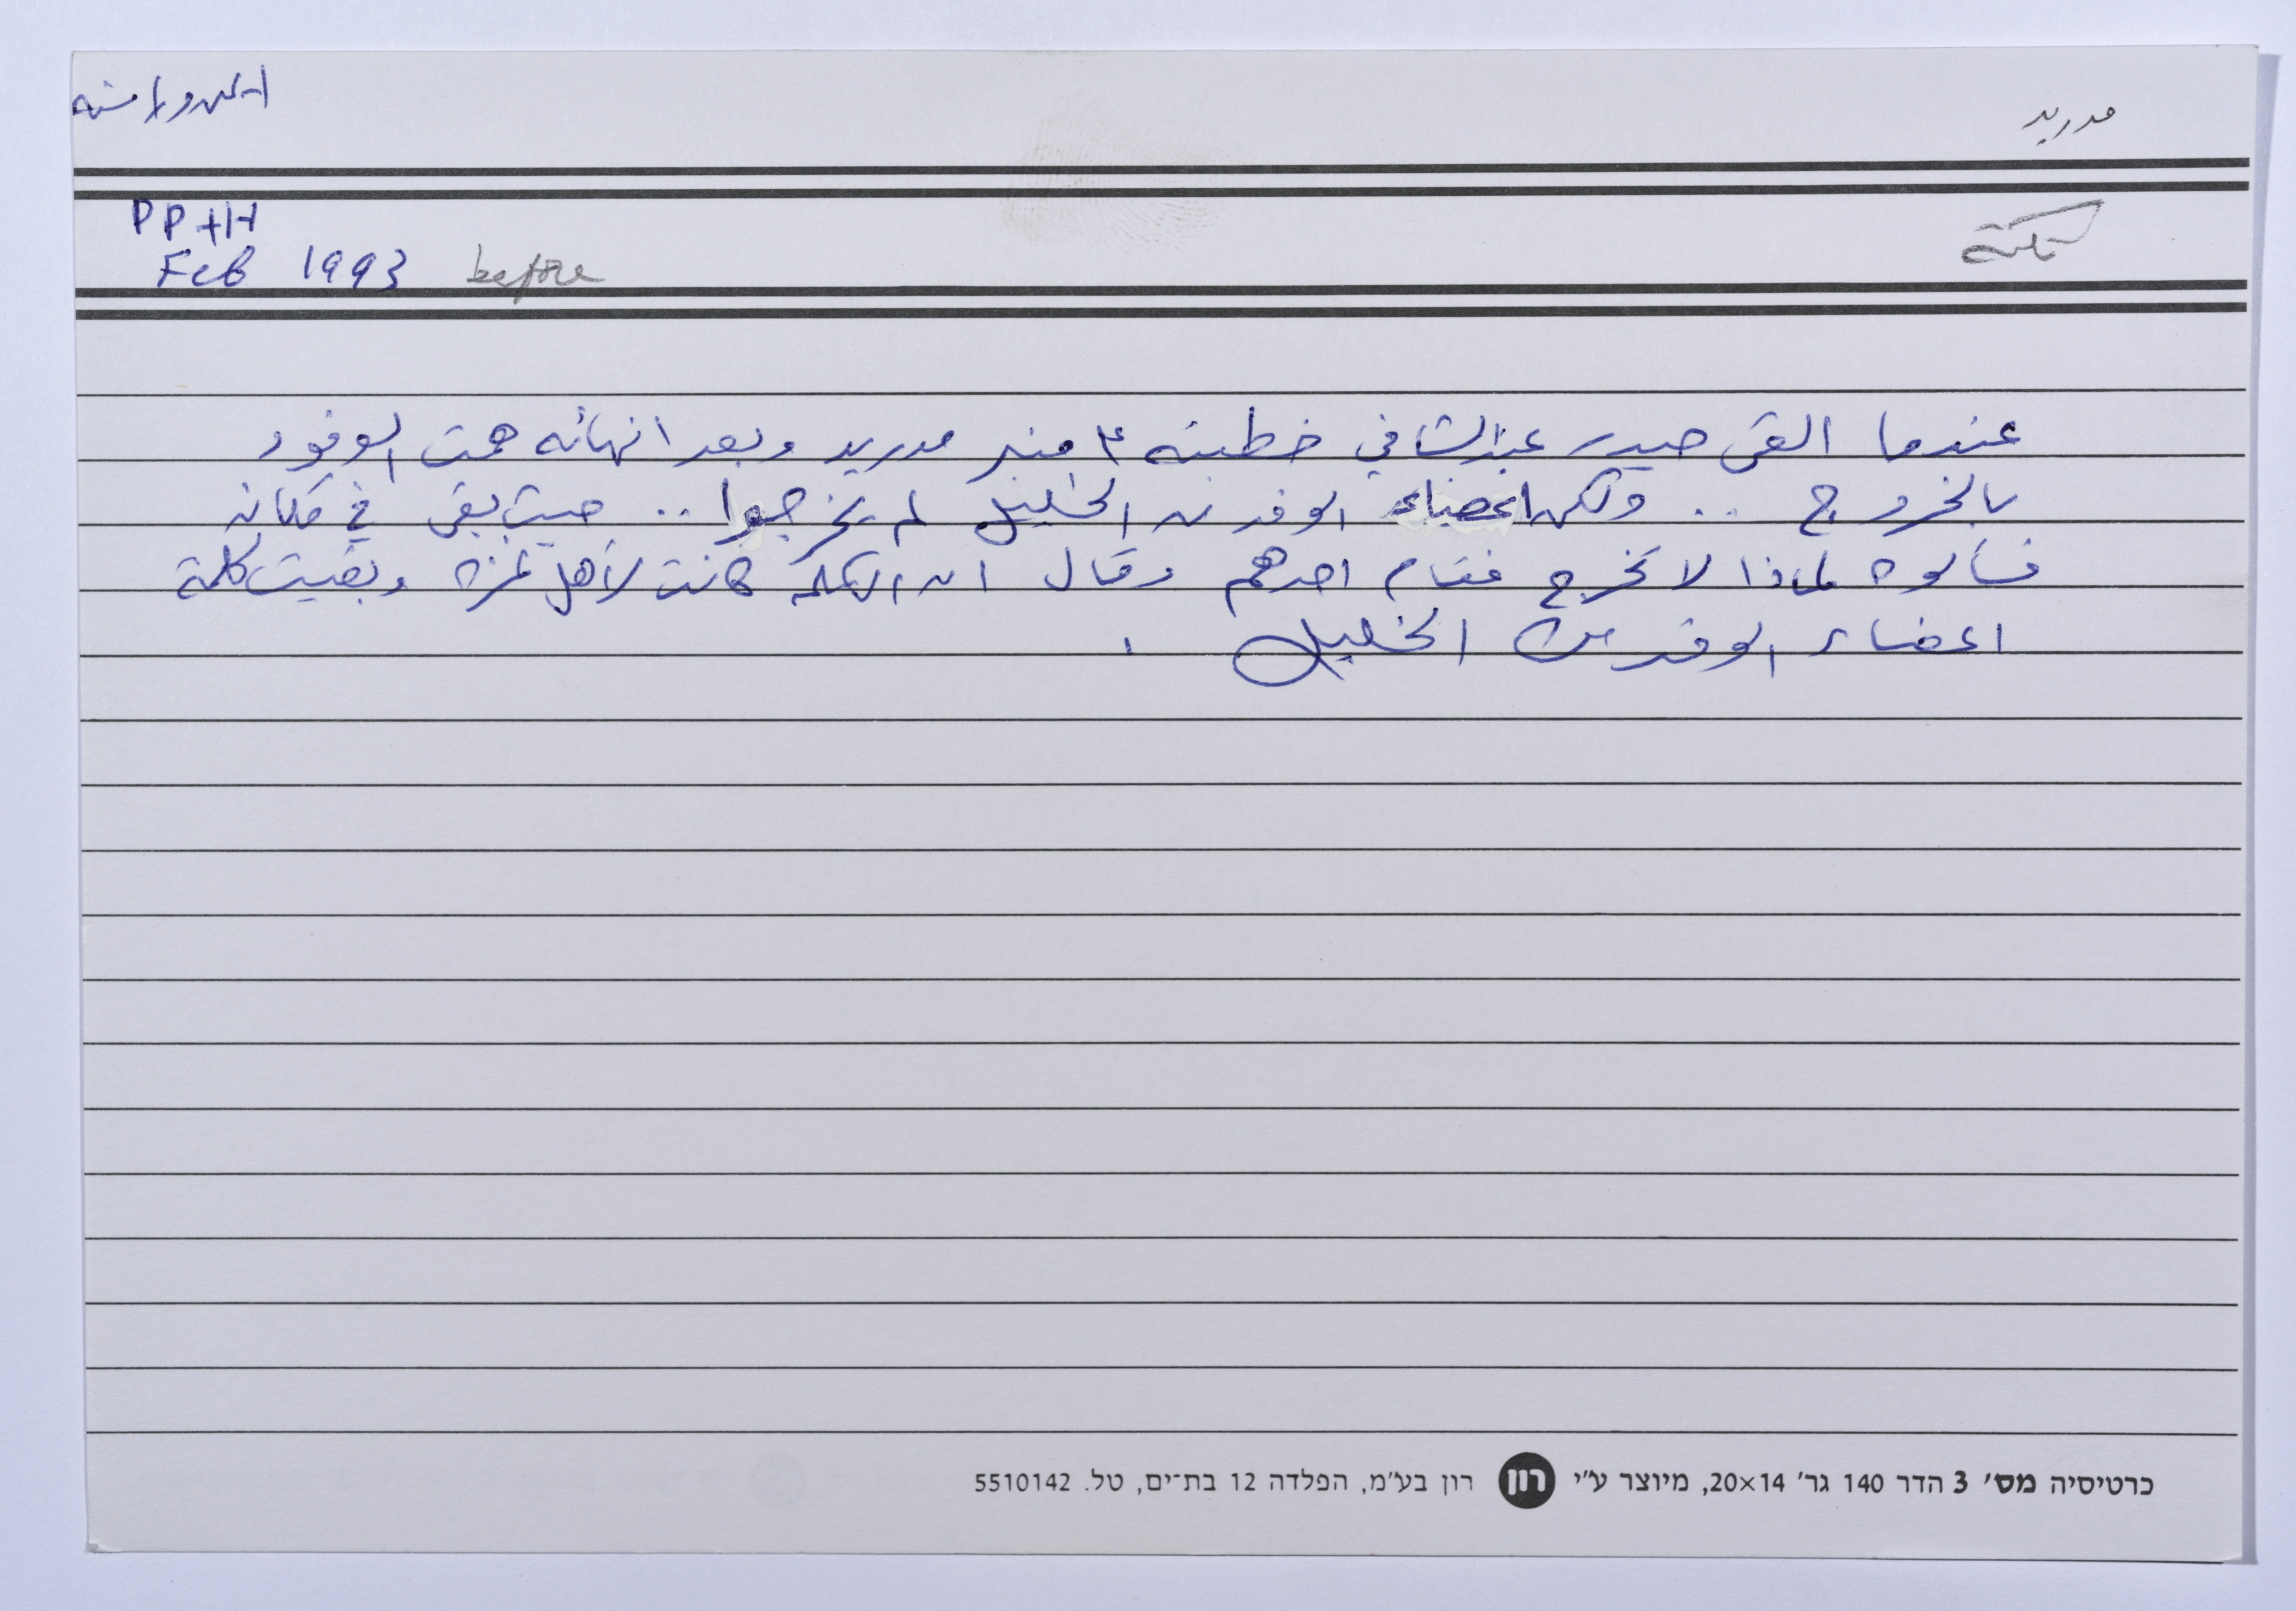 مدريد
PP+H
Feb 1993 before
نكتة
عندما القى حيدر عبد الشافي خطبته ع منبر مدريد وبعد انهائه همت الوفود
بالخروج .. ولكن اعضاء الوفد من الخليل لم يخرجوا .. حيث بقى في مكانه
فسألوه لماذا لا تخرج فقام احدهم وقال ان الكلمة كانت لأهل غزة وبقيت كلمة
اعضاء الوفد من الخليل .
כרטיסיה מס׳ 3 הדר 140 גר׳ 20×14, מיוצר ע״י רון רון בע״מ, הפלדה 12 בת־ים, טל. 5510142